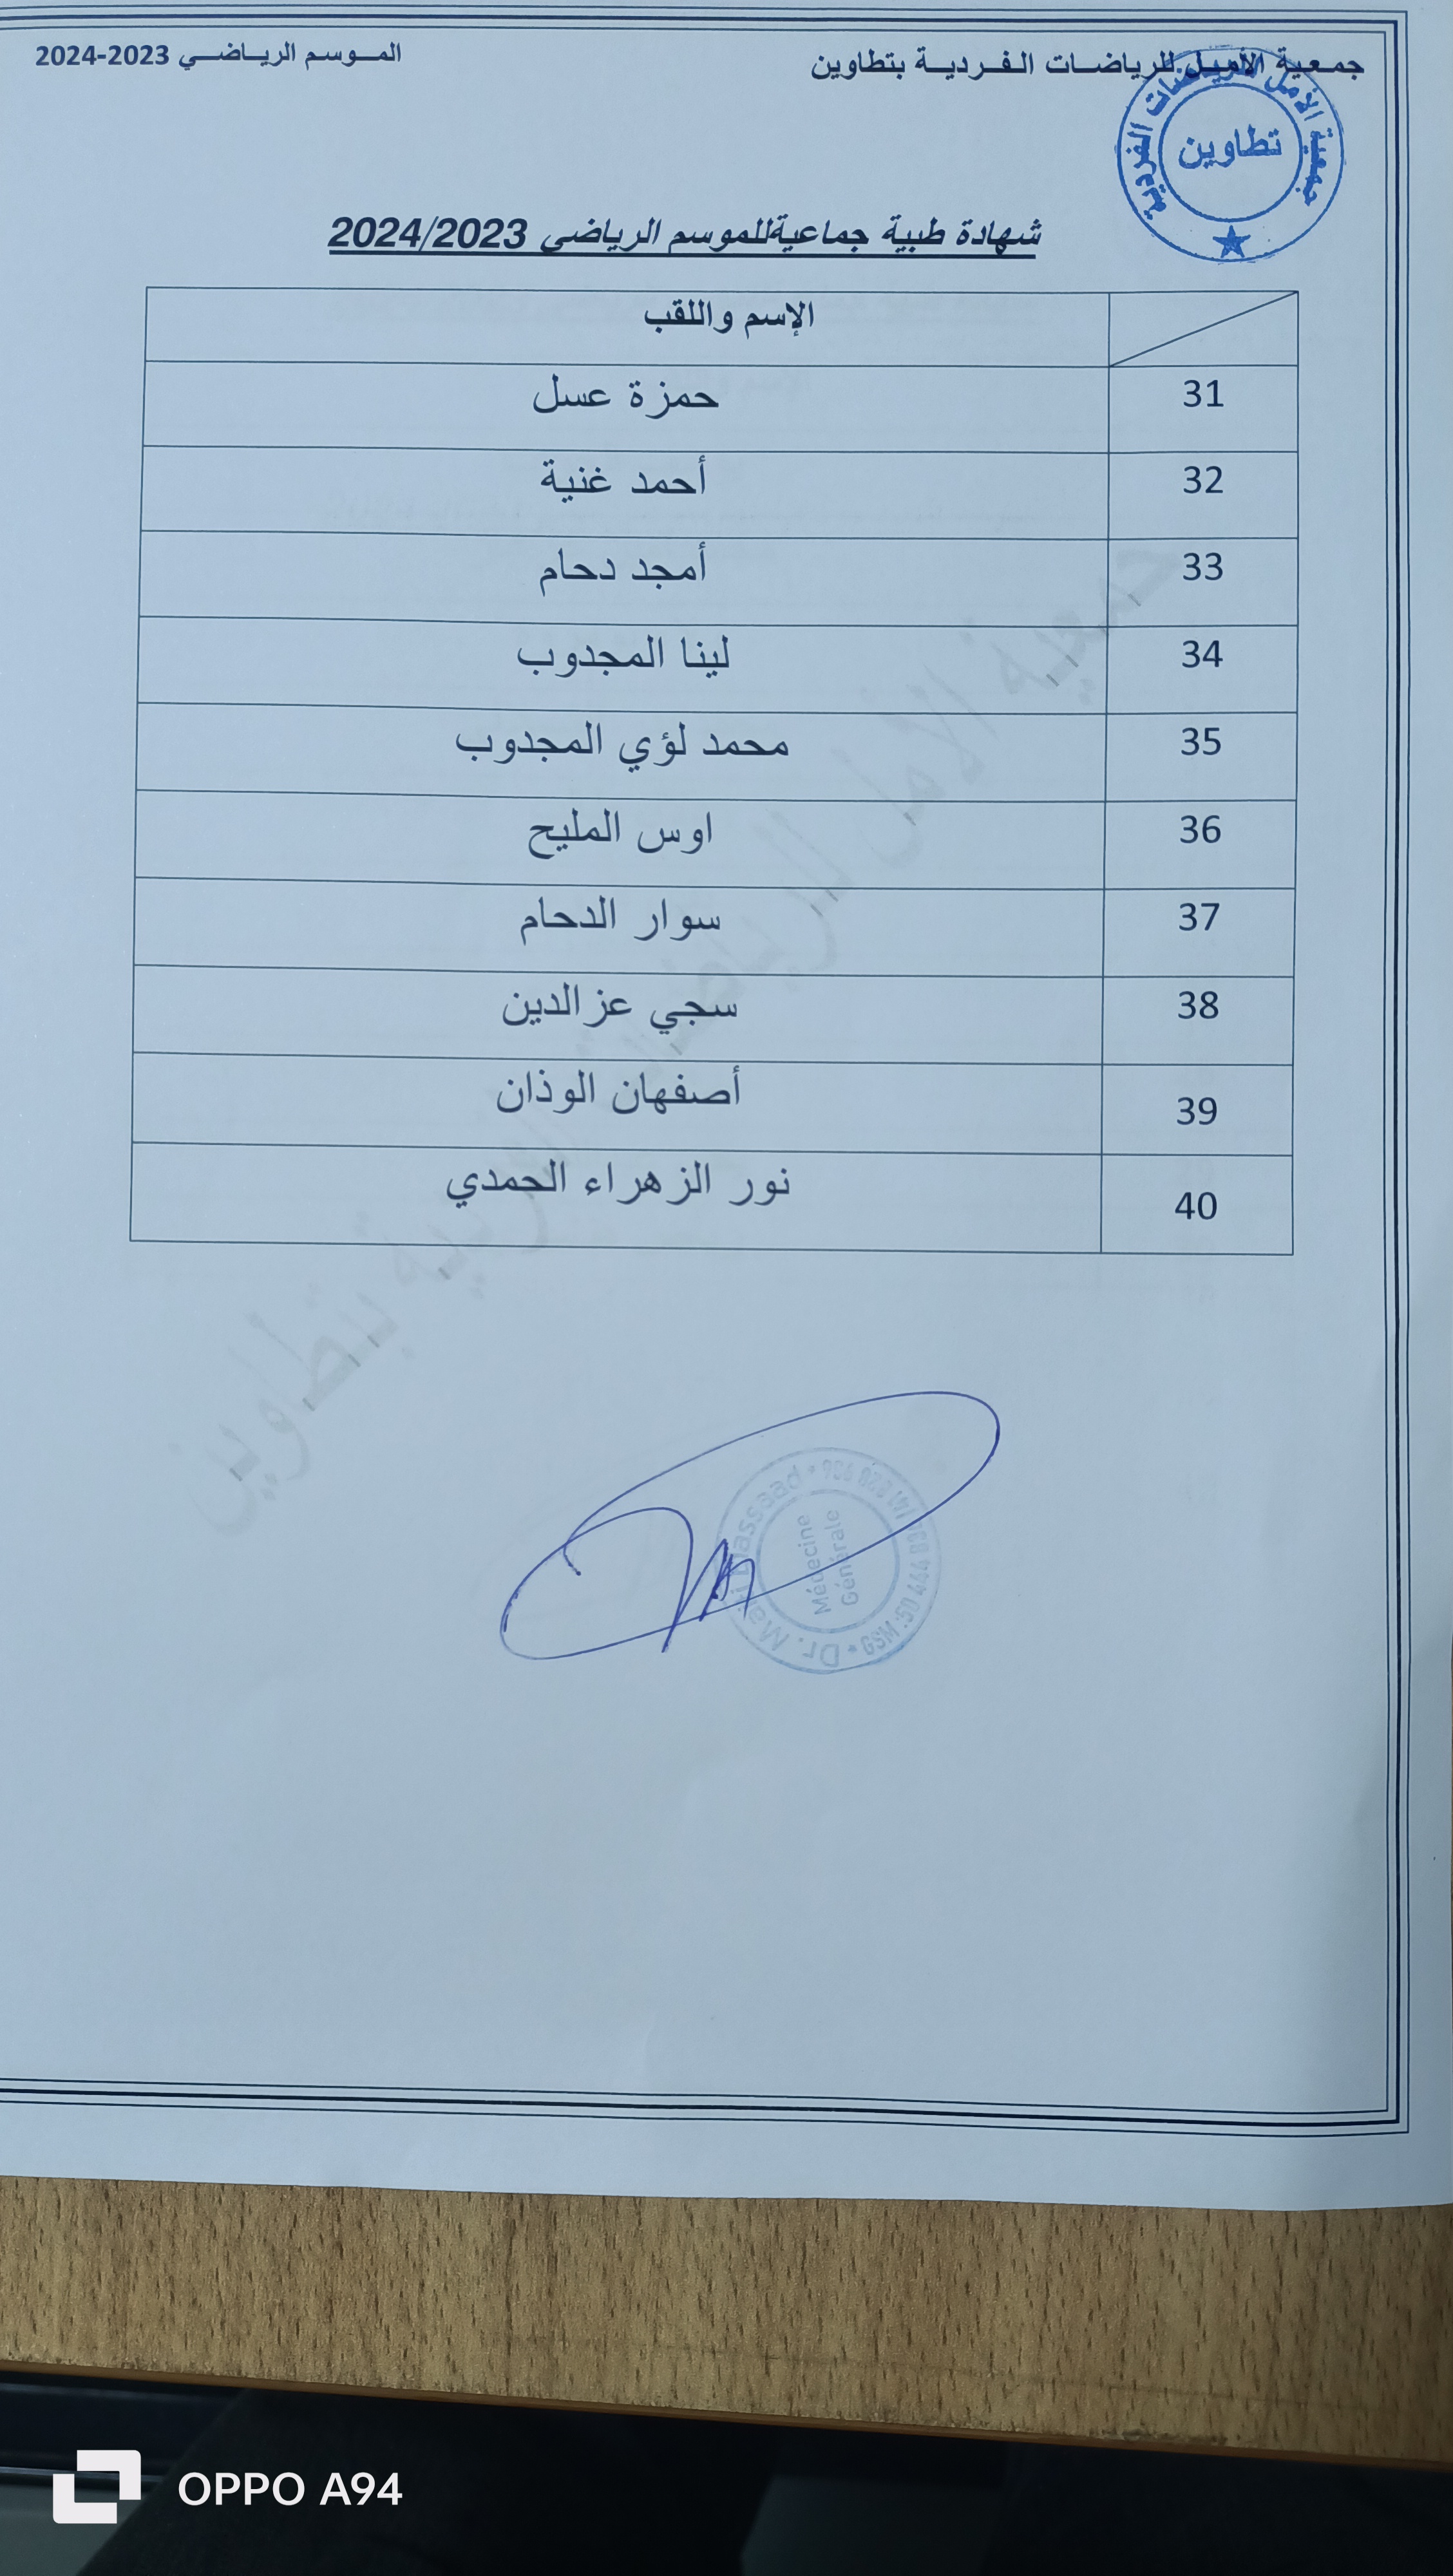 جمعية الأمل للرياضات الفردية بتطاوين
الموسم الرياضي 2023-2024
جمعية الأمل للرياضات الفردية
تطاوين
شهادة طبية جماعيةللموسم الرياضي 2024/2023
الإسم واللقب
31 حمزة عسل
32 أحمد غنية
33 أمجد دحام
34 لينا المجدوب
35 محمد لؤي المجدوب
36 اوس المليح
37 سوار الدحام
38 سجي عزالدين
39 أصفهان الوذان
40 نور الزهراء الحمدي
جمعية الأمل للرياضات الفردية بتطاوين
Dr.
Médecine
Générale
GSM:
OPPO A94